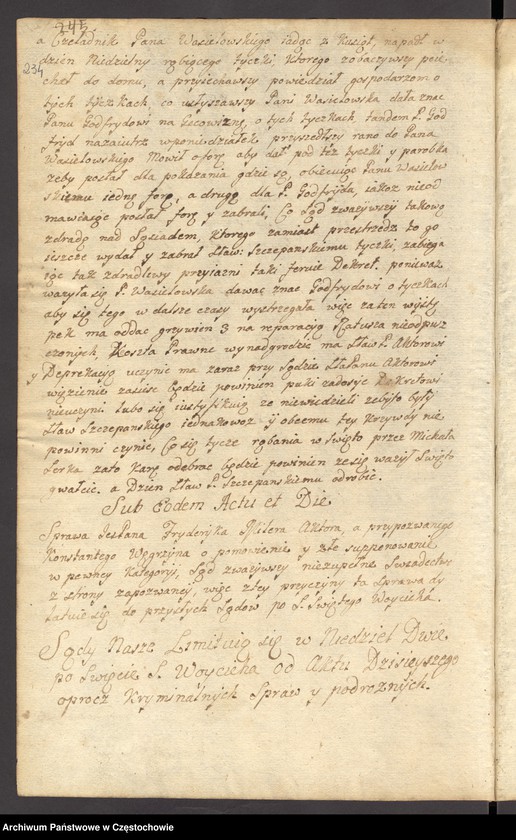 245
234
a Czeladnik Pana Wasielowskiego iadąc z Kusiąt, napadł w
dzien Niedzielny robiącego tyczki, ktorego zobaczywszy poie-
chał do domu, a przyiechawszy powiedział gospodarzom o
tych tyczkach, co usłyszawszy Pani Wasielowska dała znac
Panu Godfrydowi na o tych tyczkach tandem P. God
fryd nazaiutrz w poniedziałek przyszedłszy rano do Pana
Wasielowskiego Mowił o forę aby dał pod też tyczki y parobka
zeby posłał dla pokazania gdzie są, obiecuiąc Panu Wasielow
skiemu iedną forę, a drugą dla P. Godfryda, iakoz nieod
mawiaiąc posłał forę y zabrali, Co Sąd zwazywszy takową
zdradę nad Sąsiadem, ktorego zamiast przestrzedz to go
ieszcze wydał y zabrał Sław: Szczepanskiemu tyczki, zabiega
iąc tak zdradliwey przyiazni taki feruie Dekret. poniewaz
wazyła się P. Wasielowska dawac znac Godfrydowi o tyczkach
aby się tego w dalsze czasy wystrzegała więc za ten wystę
pek ma oddac grzywien 3 na reparacyą Ratusza nieodpusz
czonych, Koszta Prawne wynadgrodzic ma Sław P. Aktorowi
y Deprekacyą uczynic ma zaraz przy Sądzie Aktorowi
więzienie zasiesc będzie powinien puki zadosyc Dekretowi
nieuczyni. lubo się iustyfikuią ze niewiedzieli zeby to były
Sław Szczepanskiego iednakowoz y obcemu tey krzywdy nie
powinni czynic, Co się tycze rąbania w Swięto przez Michała
Serka zato karę odebrac będzie powinien ze się wazył Swięto
gwałcic. a Dzien Sław P. Szczepanskiemu odrobic.
Sub Eodem Actu et Die
Sprawa Jest Pana Fryderyka Milera Aktora, a przypozwanego
Konstantego Węgrzyna o pomowienie y złe supponowanie
w pewney Kategoryi, Sąd zwazywszy niezupełne Swiadectwo
z strony zapozwaney, więc z tey przyczyny ta Sprawa dy
latuie się do przyszłych Sądow po S. Swiętego Woyciecha.
Sądy Nasze Limituią się w Niedziel Dwie
po Swięcie S. Woyciecha od Aktu Dzisieyszego
oprocz Kryminalnych Spraw y podroznych.
Archiwum Państwowe w Częstochowie